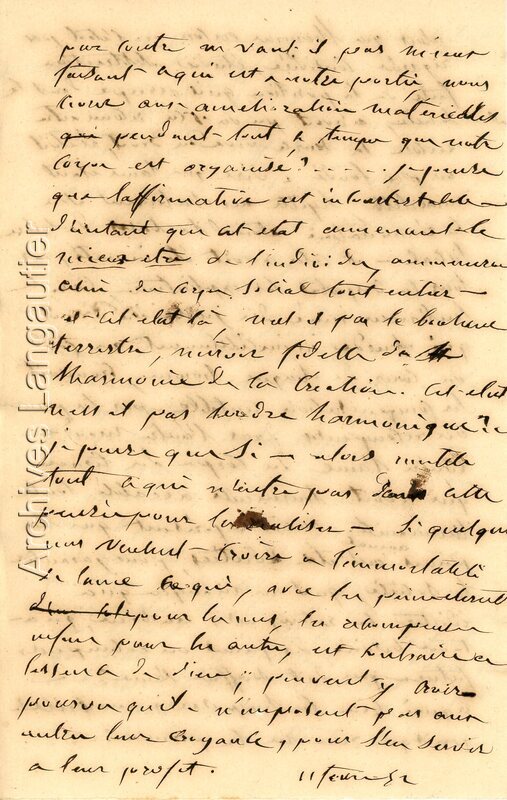 par contre ne vaut il pas mieux
faisant a qui est a notre portée, nous
aux amélioration matérielles
qui pendant tout le temps que notre
corps est organisé? - - - - . je pense
que l'affirmative est incontestable -
D'autant que cet etat amenant le
mieux etre de l'individu, amenera
celui du corps social tout entier -
et cet etat là, n'est il pas le bonheur
terrestre, miroir fidelle de
l'harmonie de la Creation. Cet etat
n'est il pas l'ordre harmonique?
je pense que si - alors inutile
tout a qui n'entre pas dans cette
pensée pour la réaliser - Si quelques
uns veulent croire a l'immortalité
de l'ame ce qui, avec les
pour les uns, les recompenses
pour les autres, est contraire a
l'essence de dieu; peuvent y croire
pourvu qu'ils n'imposent pas aux
autres leur croyance, pour s'en servir
a leur profit. 11 fevrier 52
Archives Langautier